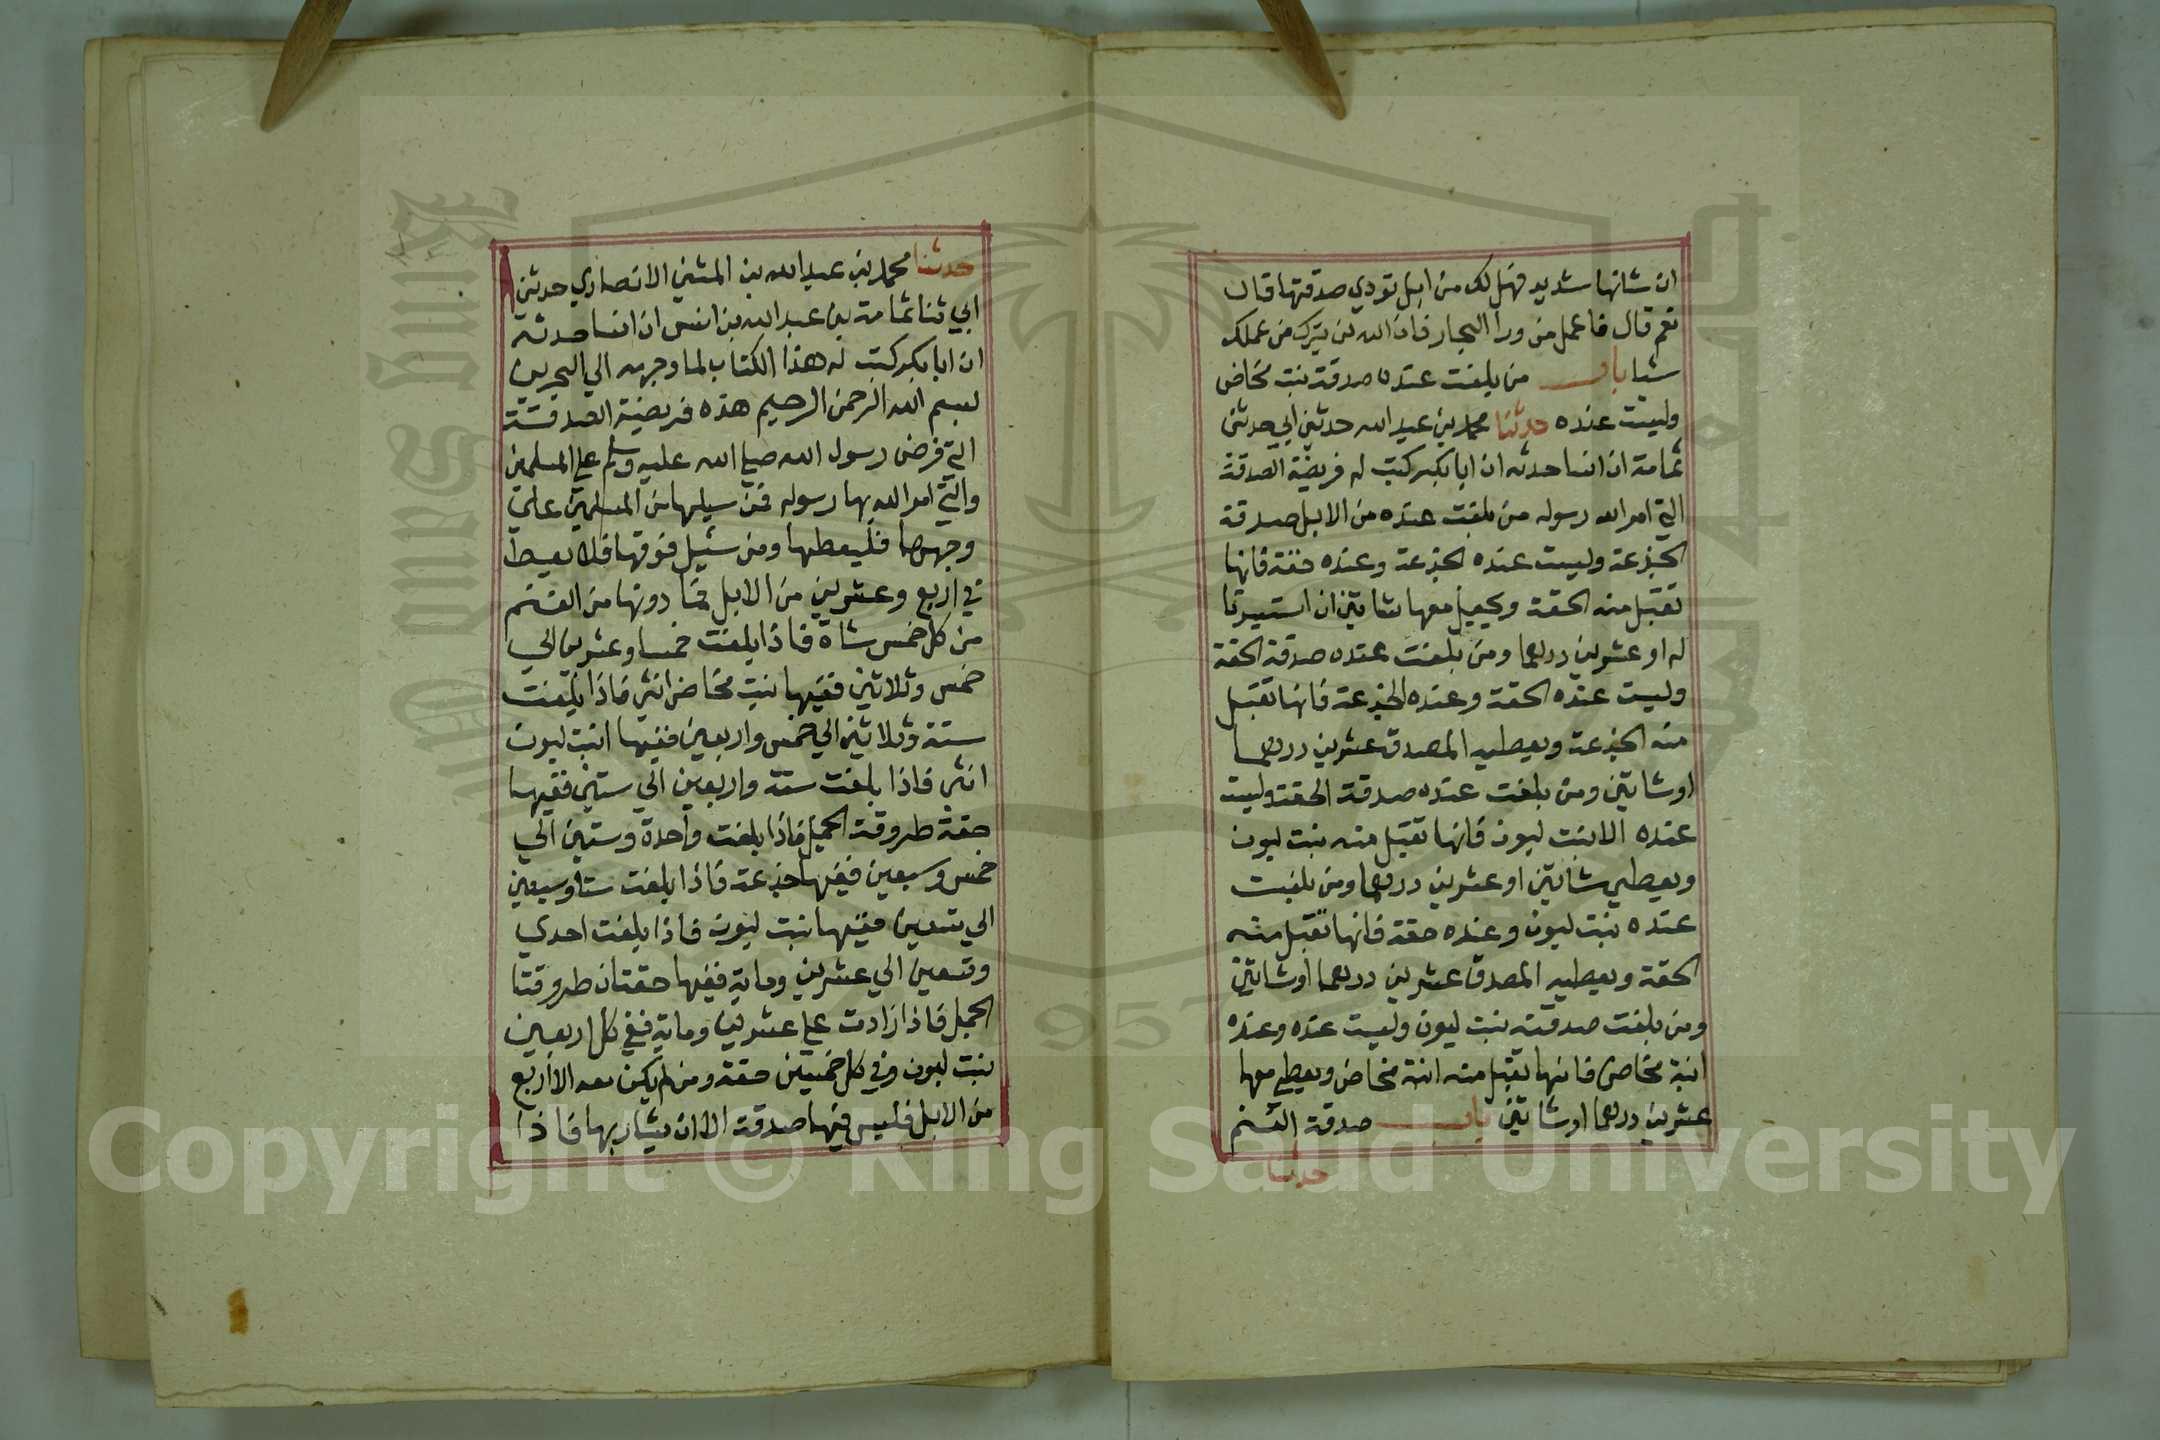 ان شانها شديد فهل لك من ابل تودي صدقتها قال
نعم قال فاعمل من ورا البحار فان الله لن يترك من عملك
شيا باب من بلغت عنده صدقة بنت مخاض
وليست عنده حدثنا محمد بن عبد الله حدثني ابي حدثني
ثمامة ان انسا حدثه ان ابا بكر كتب له فريضة الصدقة
التي امر الله رسوله من بلغت عنده من الابل صدقة
الجذعة وليست عنده الجذعة وعنده حقة فانها
تقبل منه الحقة ويجعل معها شاتين ان استيسرتا
له او عشرين درهما ومن بلغت عنده صدقة الحقة
وليست عنده الحقة وعنده الجذعة فانها تقبل
منه الجذعة ويعطيه المصدق عشرين درهما
اوشاتين ومن بلغت عنده صدقة الحقة وليست
عنده الا بنت لبون فانها تقبل منه بنت لبون
ويعطي شاتين او عشرين درهما ومن بلغت
عنده بنت لبون وعنده حقة فانها تقبل منه
الحقة ويعطيه المصدق عشرين درهما اوشاتين
ومن بلغت صدقته بنت لبون وليست عنده وعنده
ابنة مخاض فانها تقبل منه ابنة مخاض ويعطي معها
عشرين درهما اوشاتين باب صدقة الغنم
حدثنا
حدثنا محمد بن عبد الله بن المثني الانصاري حدثني
ابي ثنا ثمامة بن عبد الله بن انس ان انسا حدثه
ان ابا بكر كتب له هذا الكتاب لما وجهه الي البحرين
بسم الله الرحمن الرحيم هذه فريضة الصدقة
التي فرض رسول الله صلي الله عليه وسلم علي المسلمين
والتي امر الله بها رسوله فمن سيلها من المسلمين علي
وجهها فليعطها ومن سئيل فوقها فلا يعط
في اربع وعشرين من الابل فما دونها من الغنم
من كل خمس شاة فاذا بلغت خمسا وعشرين الي
خمس وثلاثين ففيها بنت مخاض انثي فاذا بلغت
ستة وثلاثين الي خمس واربعين ففيها ابنت لبون
انثي فاذا بلغت ستة واربعين الي ستين ففيها
حقة طروقة الجمل فاذا بلغت واحدة وستين الي
خمس وسبعين ففيها جذعة فاذا بلغت ستا وسبعين
الي تسعين ففيها بنت لبون فاذا بلغت احدي
وتسعين الي عشرين وماية ففيها حقتان طروقتا
الجمل فاذا زادت علي عشرين وماية ففي كل اربعين
بنت لبون وفي كل خمسين حقة ومن لم يكن معه الا اربع
من الابل فليس فيها صدقة الا ان يشا ربها فاذا
King Saud University
1957
Copyright © King Saud University